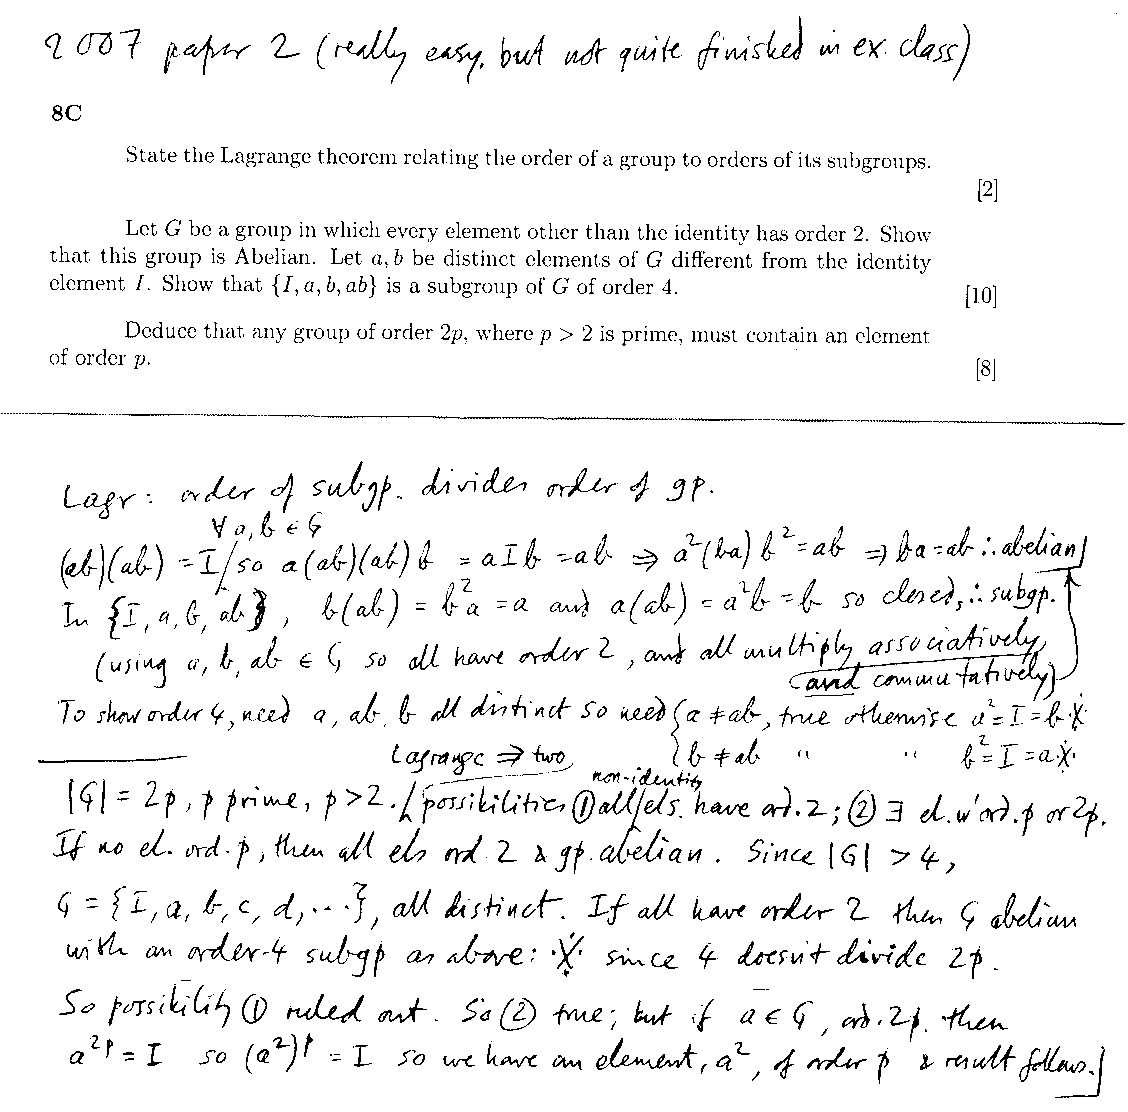 2007 paper 2 (really easy, but not quite finished in ex. class)
8C
State the Lagrange theorem relating the order of a group to orders of its subgroups.
[2]
Let G be a group in which every element other than the identity has order 2. Show
that this group is Abelian. Let a, b be distinct elements of G different from the identity
element I. Show that {I, a, b, ab} is a subgroup of G of order 4.
[10]
Deduce that any group of order 2p, where p > 2 is prime, must contain an element
of order p.
[8]
Lagr: order of subgp. divides order of gp.
∀ a, b ∈ G
(ab)(ab) = I / so a(ab)(ab)b = aIb = ab ⇒ a²(ba)b² = ab ⇒ ba = ab ∴ abelian]
In {I, a, b, ab}, b(ab) = b²a = a and a(ab) = a²b = b so closed, ∴ subgp.
(using a, b, ab ∈ G so all have order 2, and all multiply associatively
and commutatively)
To show order 4, need a, ab, b all distinct so need { a ≠ ab, true otherwise a² = I = b ※
{ b ≠ ab " " b² = I = a ※
Lagrange ⇒ two
non-identity
|G| = 2p, p prime, p > 2. / possibilities ① all / els. have ord. 2; ② ∃ el. w' ord. p or 2p.
If no el. ord. p, then all els ord 2 & gp. abelian. Since |G| > 4,
G = {I, a, b, c, d, ...}, all distinct. If all have order 2 then G abelian
with an order-4 subgp as above: ※ since 4 doesn't divide 2p.
So possibility ① ruled out. So ② true; but if a ∈ G, ord. 2p. then
a²ᵖ = I so (a²)ᵖ = I so we have an element, a², of order p & result follows.]